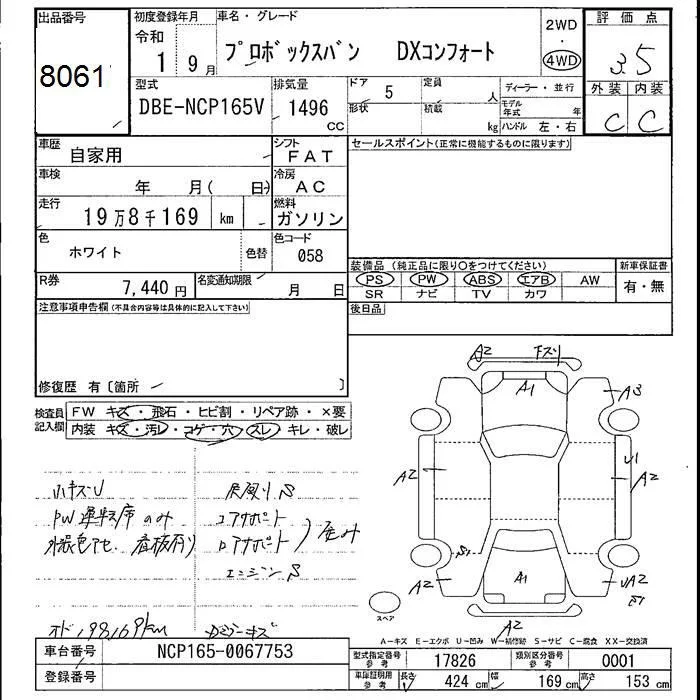 出品番号
8061
初度登録年月
令和
1 9月
車名・グレード
プロボックスバン DXコンフォート
2WD
4WD
評価点
3.5
外装 内装
C C
型式
DBE-NCP165V
排気量
1496
CC
ドア
5
形状
定員
人
積載
kg
ディーラー・並行
モデル年式 年
ハンドル 左・右
車歴
自家用
シフト
FAT
車検
年 月( 日)
冷房
AC
走行
19万8千169 km
燃料
ガソリン
色
ホワイト
色替
色コード
058
R券
7,440円
名変通知期限
月 日
セールスポイント(正常に機能するものに限ります)
装備品 (純正品に限り○をつけてください)
PS PW ABS エアB AW
SR ナビ TV カワ
新車保証書
有・無
後日品
注意事項申告欄(不具合内容等は具体的に記入して下さい)
修復歴 有〔箇所 〕
検査員記入欄
FW キズ・飛石・ヒビ割・リペア跡・×要
内装 キズ・汚レ・コゲ・穴・スレ・キレ・破レ
小キズU
PW運転席のみ
外装色アセ、看板有り
オド198169km
コアサポート
ロアサポート
エンジンS
A2 下スリ
A1
A3
A2
U1
A2
S1
A2
A1
UA2
S1
A2
スペア
A-キズ E-エクボ U-凹み W-補修跡 S-サビ C-腐食 XX-交換済
車台番号
NCP165-0067753
登録番号
型式指定番号
参考
17826
類別区分番号
参考
0001
車庫証明用
参考
長さ 424 cm 幅 169 cm 高さ 153 cm